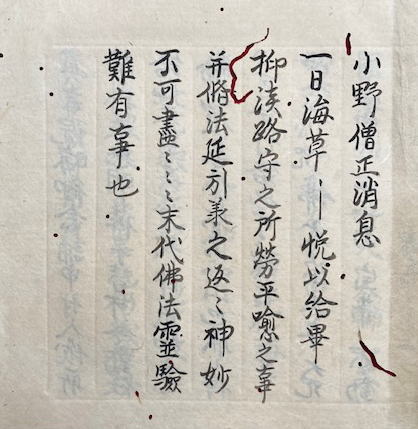 小野僧正消息
一日海草〡悦以給畢
抑淡路守之所勞平喩之事
并脩法延引義之返〻神妙
不可盡〻〻〻末代佛法霊驗
難有事也